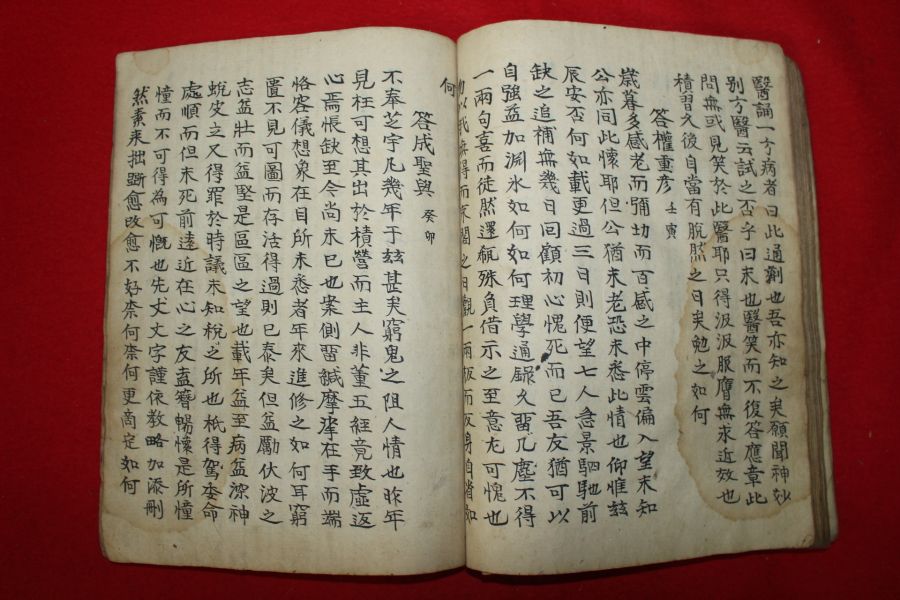 醫誦一方病者曰此通劑也吾亦知之矣願聞神妙
別方醫云試之否乎曰未也醫笑而不復答應章此
問無或見笑於此醫耶只得汲汲服膺無求近效也
積習久後自當有脫然之日矣勉之如何
答權重彦 壬寅
歲暮多感老而彌切而百感之中停雲偏入望未知
公亦同此懷耶但公猶未老恐未悉此情也仰惟玆
辰安否何如載更過三日則便望七人急景駟馳前
缺之追補無幾日回顧初心愧死而已吾友猶可以
自強益加淵氷如何如何理學通錄久留几塵不得
一兩句喜而徒然還瓻殊負借示之至意尤可愧也
何
答成聖與 癸卯
不奉芝宇凡幾年于玆甚矣窮鬼之阻人情也昨年
見枉可想其出於積營而主人非董五經竟致虛返
心焉悵缺至今尚未已也案側留緘摩挲在手而端
恪容儀想象在目所未悉者年來進修之如何耳窮
匱不見可圖而存活得過則已泰矣但益勵伏波之
志益壯而益堅是區區之望也載年益至病益深神
蛻皮之又得罪於時議未知稅之所也秖得駕本命
處順而但未死前遠近在心之友盍簪暢懷是所憧
憧而不可得為可慨也先丈文字謹依教略加添刪
然素來拙斲愈改愈不好奈何奈何更商定如何